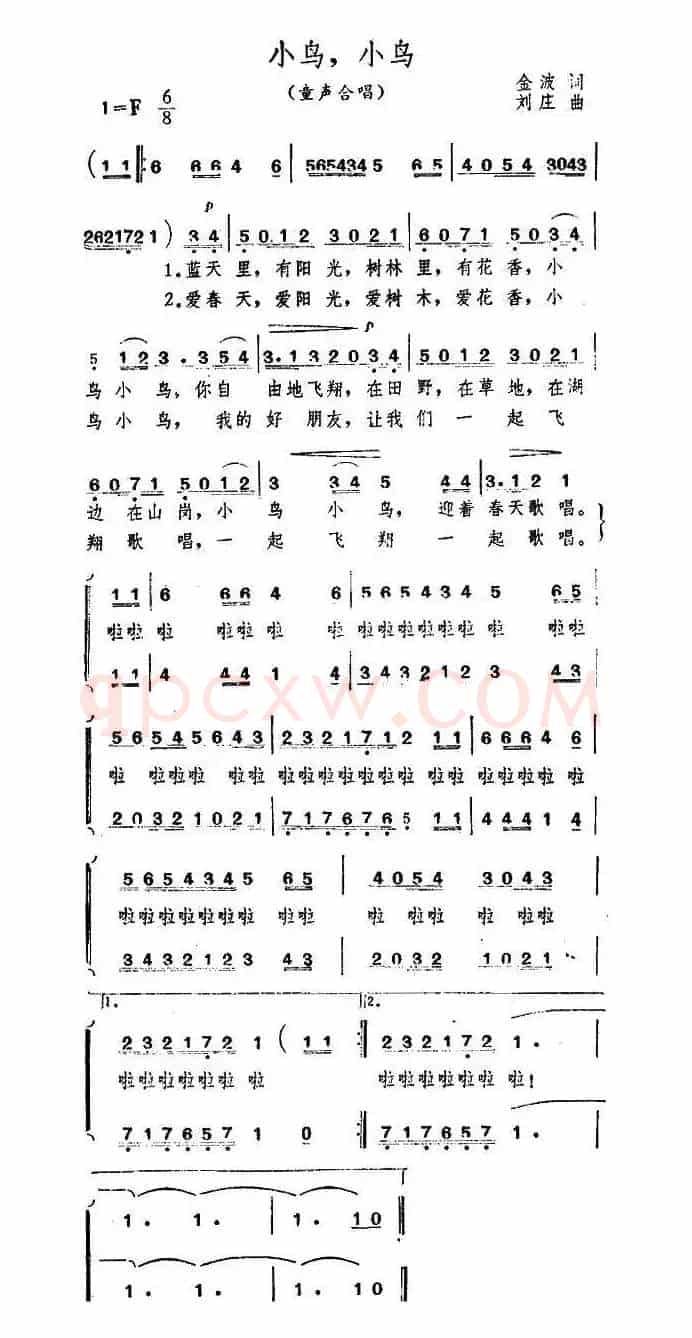 小鸟，小鸟
（童声合唱）
金波 词
刘庄 曲
1=F 6/8
(11‖:6 664 6|5654345 65|4054 3043
2621721) 34|5012 3021|6071 5034
p
1.蓝天里，有阳光，树林里，有花香，小
2.爱春天，爱阳光，爱树木，爱花香，小
5 123.354|3.132034|5012 3021
p
鸟小鸟，你自 由地飞翔，在田野，在草地，在湖
鸟小鸟，我的好 朋友，让我们一起飞
6071 5012|3 34 5 44|3.12 1
边在山岗，小鸟小鸟，迎着春天歌唱。
翔歌唱，一起飞翔一起歌唱。
11|6 664 6|5654345 65
啦啦 啦 啦啦啦 啦 啦啦啦啦啦啦啦 啦啦
11|4 441 4|3432123 43
56545643|2321712 11|6664 6
啦 啦啦啦 啦啦 啦啦啦啦啦啦啦 啦啦 啦啦啦啦 啦
20321021|7176765 11|4441 4
5654345 65|4054 3043
啦啦啦啦啦啦啦 啦啦 啦 啦啦 啦 啦啦
3432123 43|2032 1021
1. 2.
232172 1 (11:‖232172 1.
啦啦啦啦啦啦 啦 啦啦啦啦啦啦 啦！
717657 1 0:‖717657 1.
1. 1.|1. 10‖
1. 1.|1. 10‖
qpcxw.COM